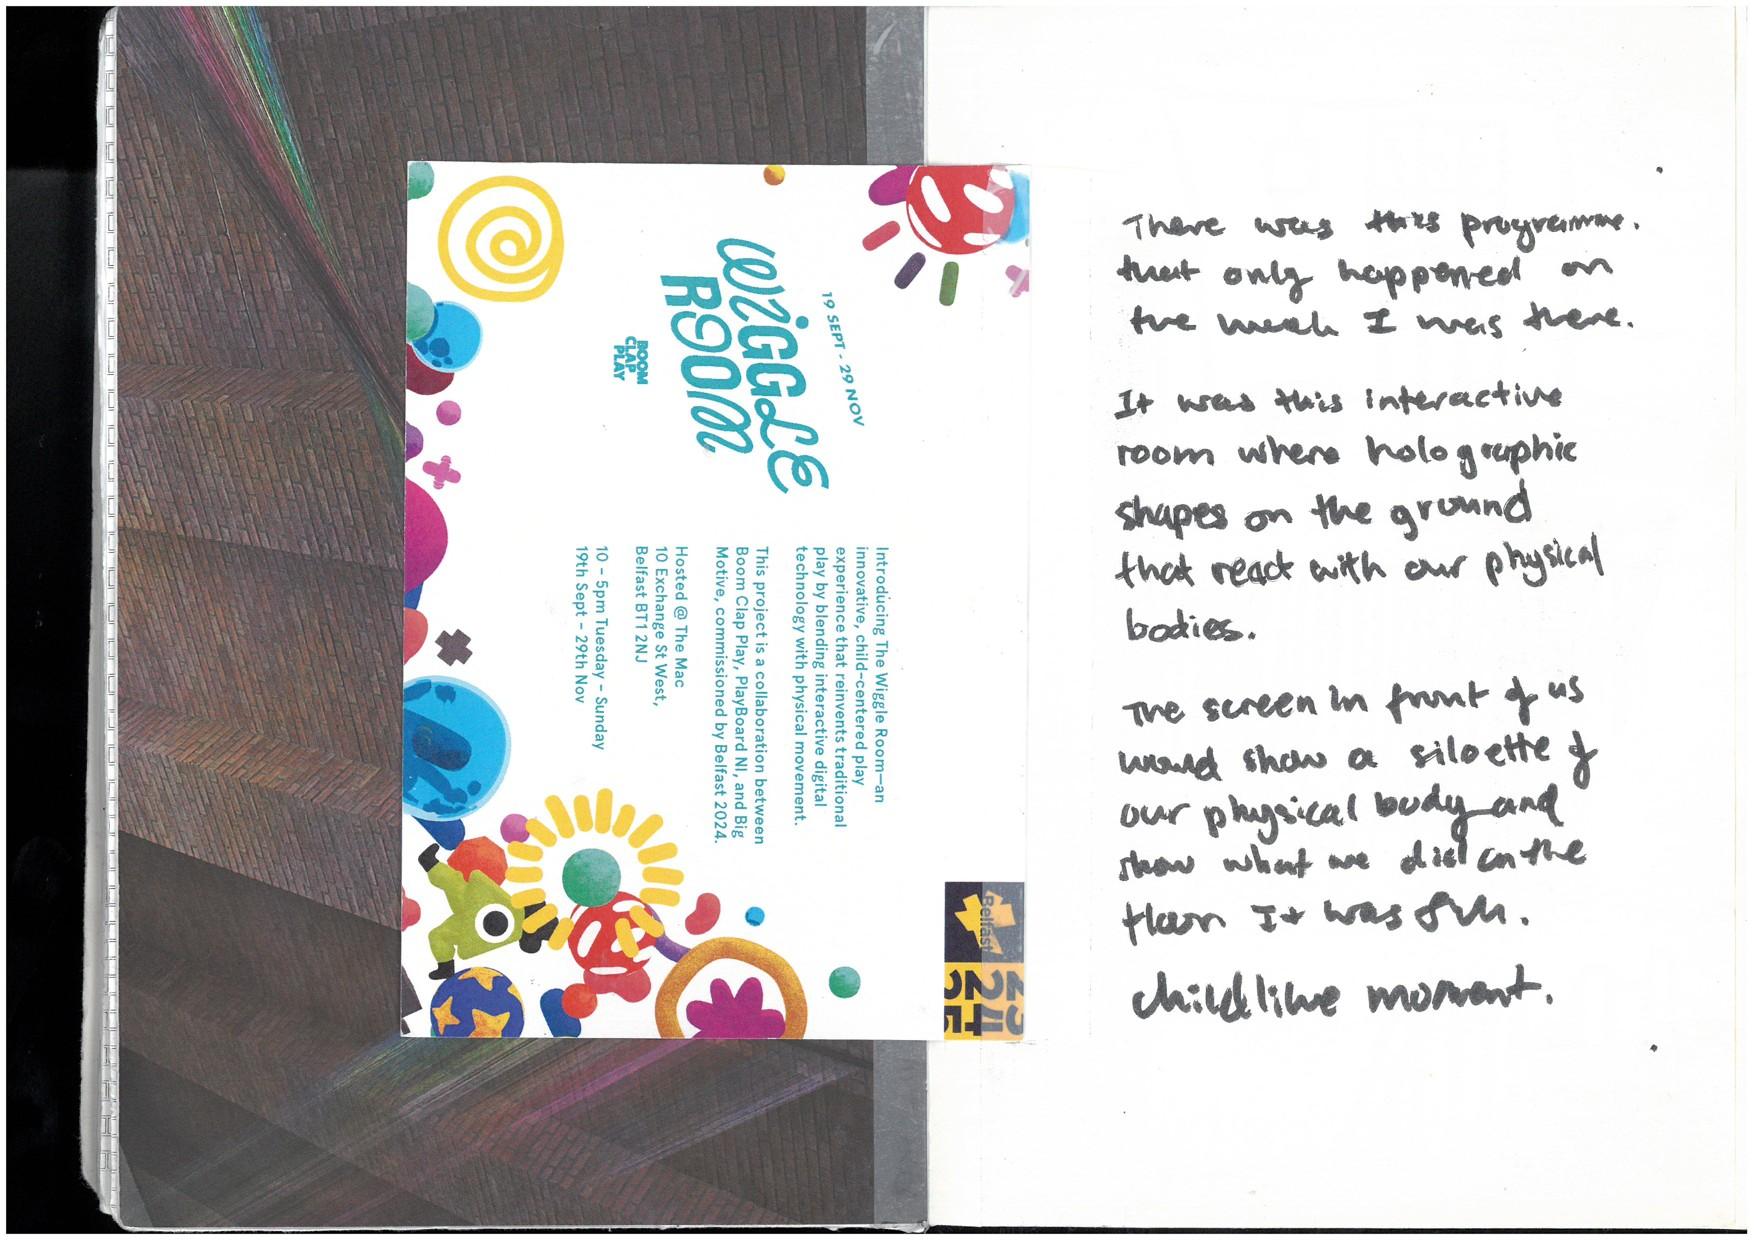 WiGGLE
ROOM
19 SEPT - 29 NOV
BOOM
CLAP
PLAY
Introducing The Wiggle Room—an
innovative, child-centered play
experience that reinvents traditional
play by blending interactive digital
technology with physical movement.
This project is a collaboration between
Boom Clap Play, PlayBoard NI, and Big
Motive, commissioned by Belfast 2024.
Hosted @ The Mac
10 Exchange St West,
Belfast BT1 2NJ
10 – 5pm Tuesday – Sunday
19th Sept – 29th Nov
Belfast
23
24
25
There was this programme.
that only happened on
the week I was there.
It was this interactive
room where holographic
shapes on the ground
that react with our physical
bodies.
The screen in front of us
would show a siloette of
our physical body and
show what we did on the
It was fun.
childlike moment.